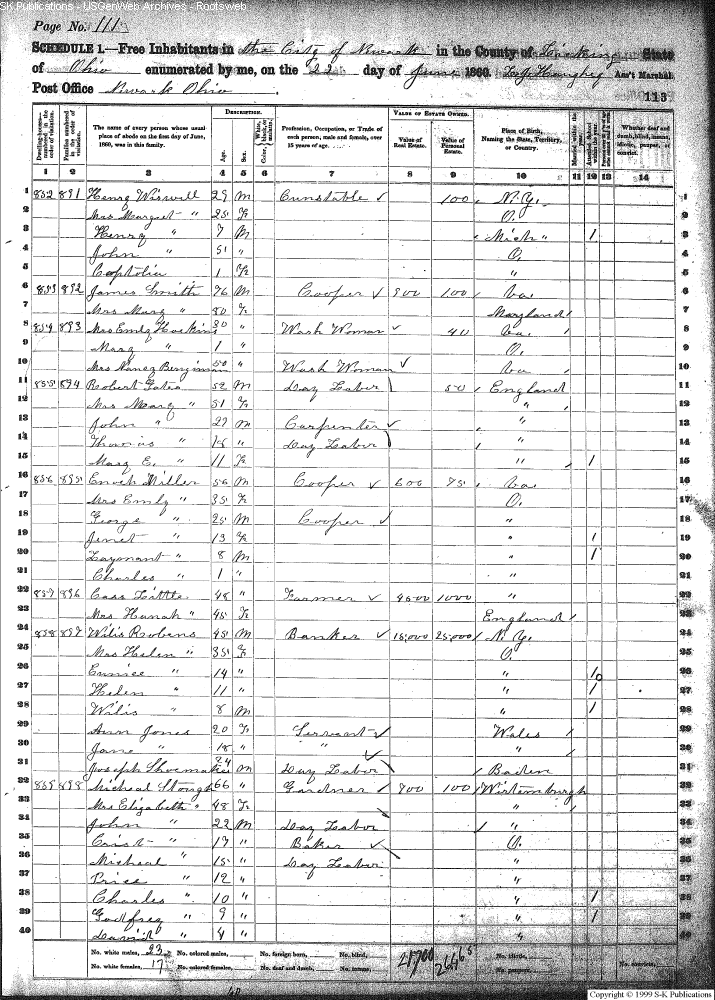 SK Publications - USGenWeb Archives - Rootsweb
Page No. 111
SCHEDULE 1.—Free Inhabitants in the City of Newark in the County of Licking State
of Ohio enumerated by me, on the 22 day of June 1860. Ass't Marshal.
Post Office Newark Ohio 113
DESCRIPTION. VALUE OF ESTATE OWNED.
Dwelling-houses— numbered in the order of visitation. Families numbered in the order of visitation. The name of every person whose usual place of abode on the first day of June, 1860, was in this family. Age. Sex. Color, White, black, or mulatto. Profession, Occupation, or Trade of each person, male and female, over 15 years of age. Value of Real Estate. Value of Personal Estate. Place of Birth, Naming the State, Territory, or Country. Married within the year. Attended School within the year. Whether deaf and dumb, blind, insane, idiotic, pauper, or convict.
1 2 3 4 5 6 7 8 9 10 11 12 13 14
1 852 891 Henry Wiswell 29 M Cunstable 100 N.Y. 1
2 Mrs Margret " 25 F O. 2
3 Henry " 7 M Mich " 1 3
4 John " 5 " O. 4
5 Coptolia 1 F " 5
6 853 892 James Smith 76 M Cooper 900 100 Va. 6
7 Mrs Mary " 80 F Maryland 7
8 854 893 Mrs Emly Hoskins 30 " Wash Woman 40 Va. 8
9 Mary " 1 " O. 9
10 Mrs Nancy Benjiman 50 " Wash Woman Va 10
11 855 894 Robert Gates 52 M Day Labor 50 England 11
12 Mrs Mary " 51 F " 12
13 John " 27 M Carpenter " 13
14 Thomas " 18 " Day Labor " 14
15 Mary E. " 11 F " 1 15
16 856 895 Enoch Miller 56 M Cooper 600 75 Va. 16
17 Mrs Emly " 35 F O. 17
18 George " 25 M Cooper " 18
19 Jenet " 13 F " 1 19
20 " 8 M " 1 20
21 Charles " 1 " " 21
22 857 896 Cass Little 48 " Farmer 4600 1000 " 22
23 Mrs Hanah " 45 F England 23
24 858 897 Wilis Robens 45 M Banker 15,000 25,000 N.Y. 24
25 Mrs Helen " 35 F O. 25
26 Eunice " 14 " " 1 26
27 Helen " 11 " " 1 27
28 Wilis " 8 M " 1 28
29 Ann Jones 20 F Servant Wales 29
30 Jane " 18 " " " 30
31 Joseph Shoemaker 24 M Day Labor Baden 31
32 859 898 Micheal Stough 66 " Gardner 800 100 Wirtemburgh 32
33 Mrs Elizabeth " 48 F " 33
34 John " 22 M Day Labor " 34
35 Crist " 17 " Baker O. 35
36 Micheal " 15 " Day Labor " 36
37 Price " 12 " " 37
38 Charles " 10 " " 1 38
39 Godfrey " 9 " " 1 39
40 David " 4 " " 40
No. white males, 23 No. colored males, No. foreign born, No. blind, 21700 26465 No. idiotic, No. convicts,
No. white females, 17 No. colored females, No. deaf and dumb, No. insane, No. paupers,
Copyright © 1999 S-K Publications